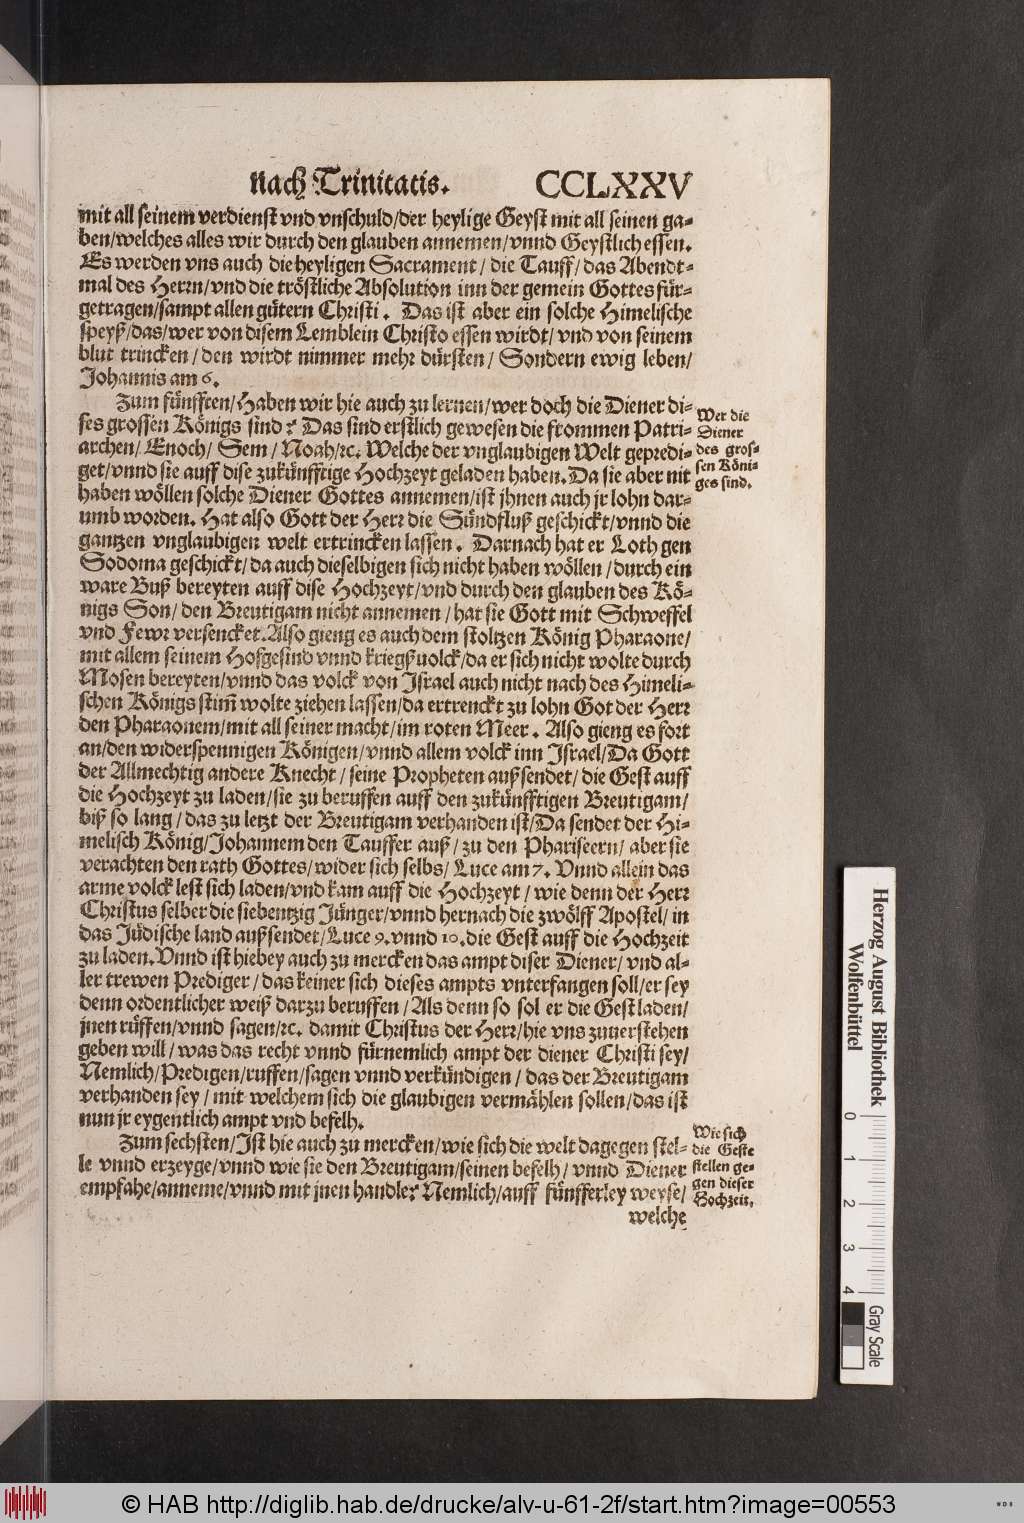 nach Trinitatis. CCLXXV
mit all seinem verdienst vnd vnschuld/der heylige Geyst mit all seinen ga-
ben/welches alles wir durch den glauben annemen/vnnd Geystlich essen.
Es werden vns auch die heyligen Sacrament/ die Tauff/das Abendt-
mal des Herrn/vnd die tröstliche Absolution inn der gemein Gottes für-
getragen/sampt allen gütern Christi. Das ist aber ein solche Himelische
speyß/das/wer von disem Lemblein Christo essen wirdt/ vnd von seinem
blut trincken/den wirdt nimmer mehr dürsten/ Sondern ewig leben/
Johannis am 6.
Zum fünfften/Haben wir hie auch zu lernen/wer doch die Diener di-
ses grossen Königs sind? Das sind erstlich gewesen die frommen Patri-
archen/ Enoch/ Sem/ Noah/ꝛc. Welche der vnglaubigen Welt gepredi-
get/vnnd sie auff dise zukünfftige Hochzeyt geladen haben. Da sie aber nit
haben wöllen solche Diener Gottes annemen/ist jhnen auch jr lohn dar-
umb worden. Hat also Gott der Herr die Sündfluß geschickt/vnnd die
gantzen vnglaubigen welt ertrincken lassen. Darnach hat er Loth gen
Sodoma geschickt/da auch dieselbigen sich nicht haben wöllen/durch ein
ware Buß bereyten auff dise Hochzeyt/vnd durch den glauben des Kö-
nigs Son/den Breutigam nicht annemen/hat sie Gott mit Schweffel
vnd Fewr versencket. Also gieng es auch dem stoltzen König Pharaone/
mit allem seinem Hofgesind vnnd kriegßuolck/da er sich nicht wolte durch
Mosen bereyten/vnnd das volck von Israel auch nicht nach des Himeli-
schen Königs stim̃ wolte ziehen lassen/da ertrenckt zu lohn Got der Herr
den Pharaonem/mit all seiner macht/im roten Meer. Also gieng es fort
an/den widerspennigen Königen/vnnd allem volck inn Israel/Da Gott
der Allmechtig andere Knecht/seine Propheten außsendet/die Gest auff
die Hochzeyt zu laden/sie zu beruffen auff den zukünfftigen Breutigam/
biß so lang/das zu letzt der Breutigam verhanden ist/Da sendet der Hi-
melisch König/Johannem den Tauffer auß/zu den Phariseern/aber sie
verachten den rath Gottes/wider sich selbs/ Luce am 7. Vnnd allein das
arme volck lest sich laden/vnd kam auff die Hochzeyt/ wie denn der Herr
Christus selber die siebentzig Jünger/vnnd hernach die zwölff Apostel/in
das Jüdische land außsendet/Luce 9. vnnd 10. die Gest auff die Hochzeit
zu laden. Vnnd ist hiebey auch zu mercken das ampt diser Diener/ vnd al-
ler trewen Prediger/das keiner sich dieses ampts vnterfangen soll/er sey
denn ordentlicher weiß darzu beruffen/Als denn so sol er die Gest laden/
jnen rüffen/vnnd sagen/ꝛc. damit Christus der Herr/hie vns zuuerstehen
geben will/was das recht vnnd fürnemlich ampt der diener Christi sey/
Nemlich/Predigen/ruffen/sagen vnnd verkündigen/das der Breutigam
verhanden sey/mit welchem sich die glaubigen vermählen sollen/das ist
nun jr eygentlich ampt vnd befelh.
Zum sechsten/Ist hie auch zu mercken/wie sich die welt dagegen stel-
le vnnd erzeyge/vnnd wie sie den Breutigam/seinen befelh/ vnnd Diener
empfahe/anneme/vnnd mit jnen handle? Nemlich/auff fünfferley weyse/
welche
Wer die
Diener
des gros-
sen Köni-
ges sind.
Wie sich
die Geste
stellen ge-
gen dieser
Hochzeit.
Herzog August Bibliothek
Wolfenbüttel
0 1 2 3 4
Gray Scale
© HAB http://diglib.hab.de/drucke/alv-u-61-2f/start.htm?image=00553
WDB